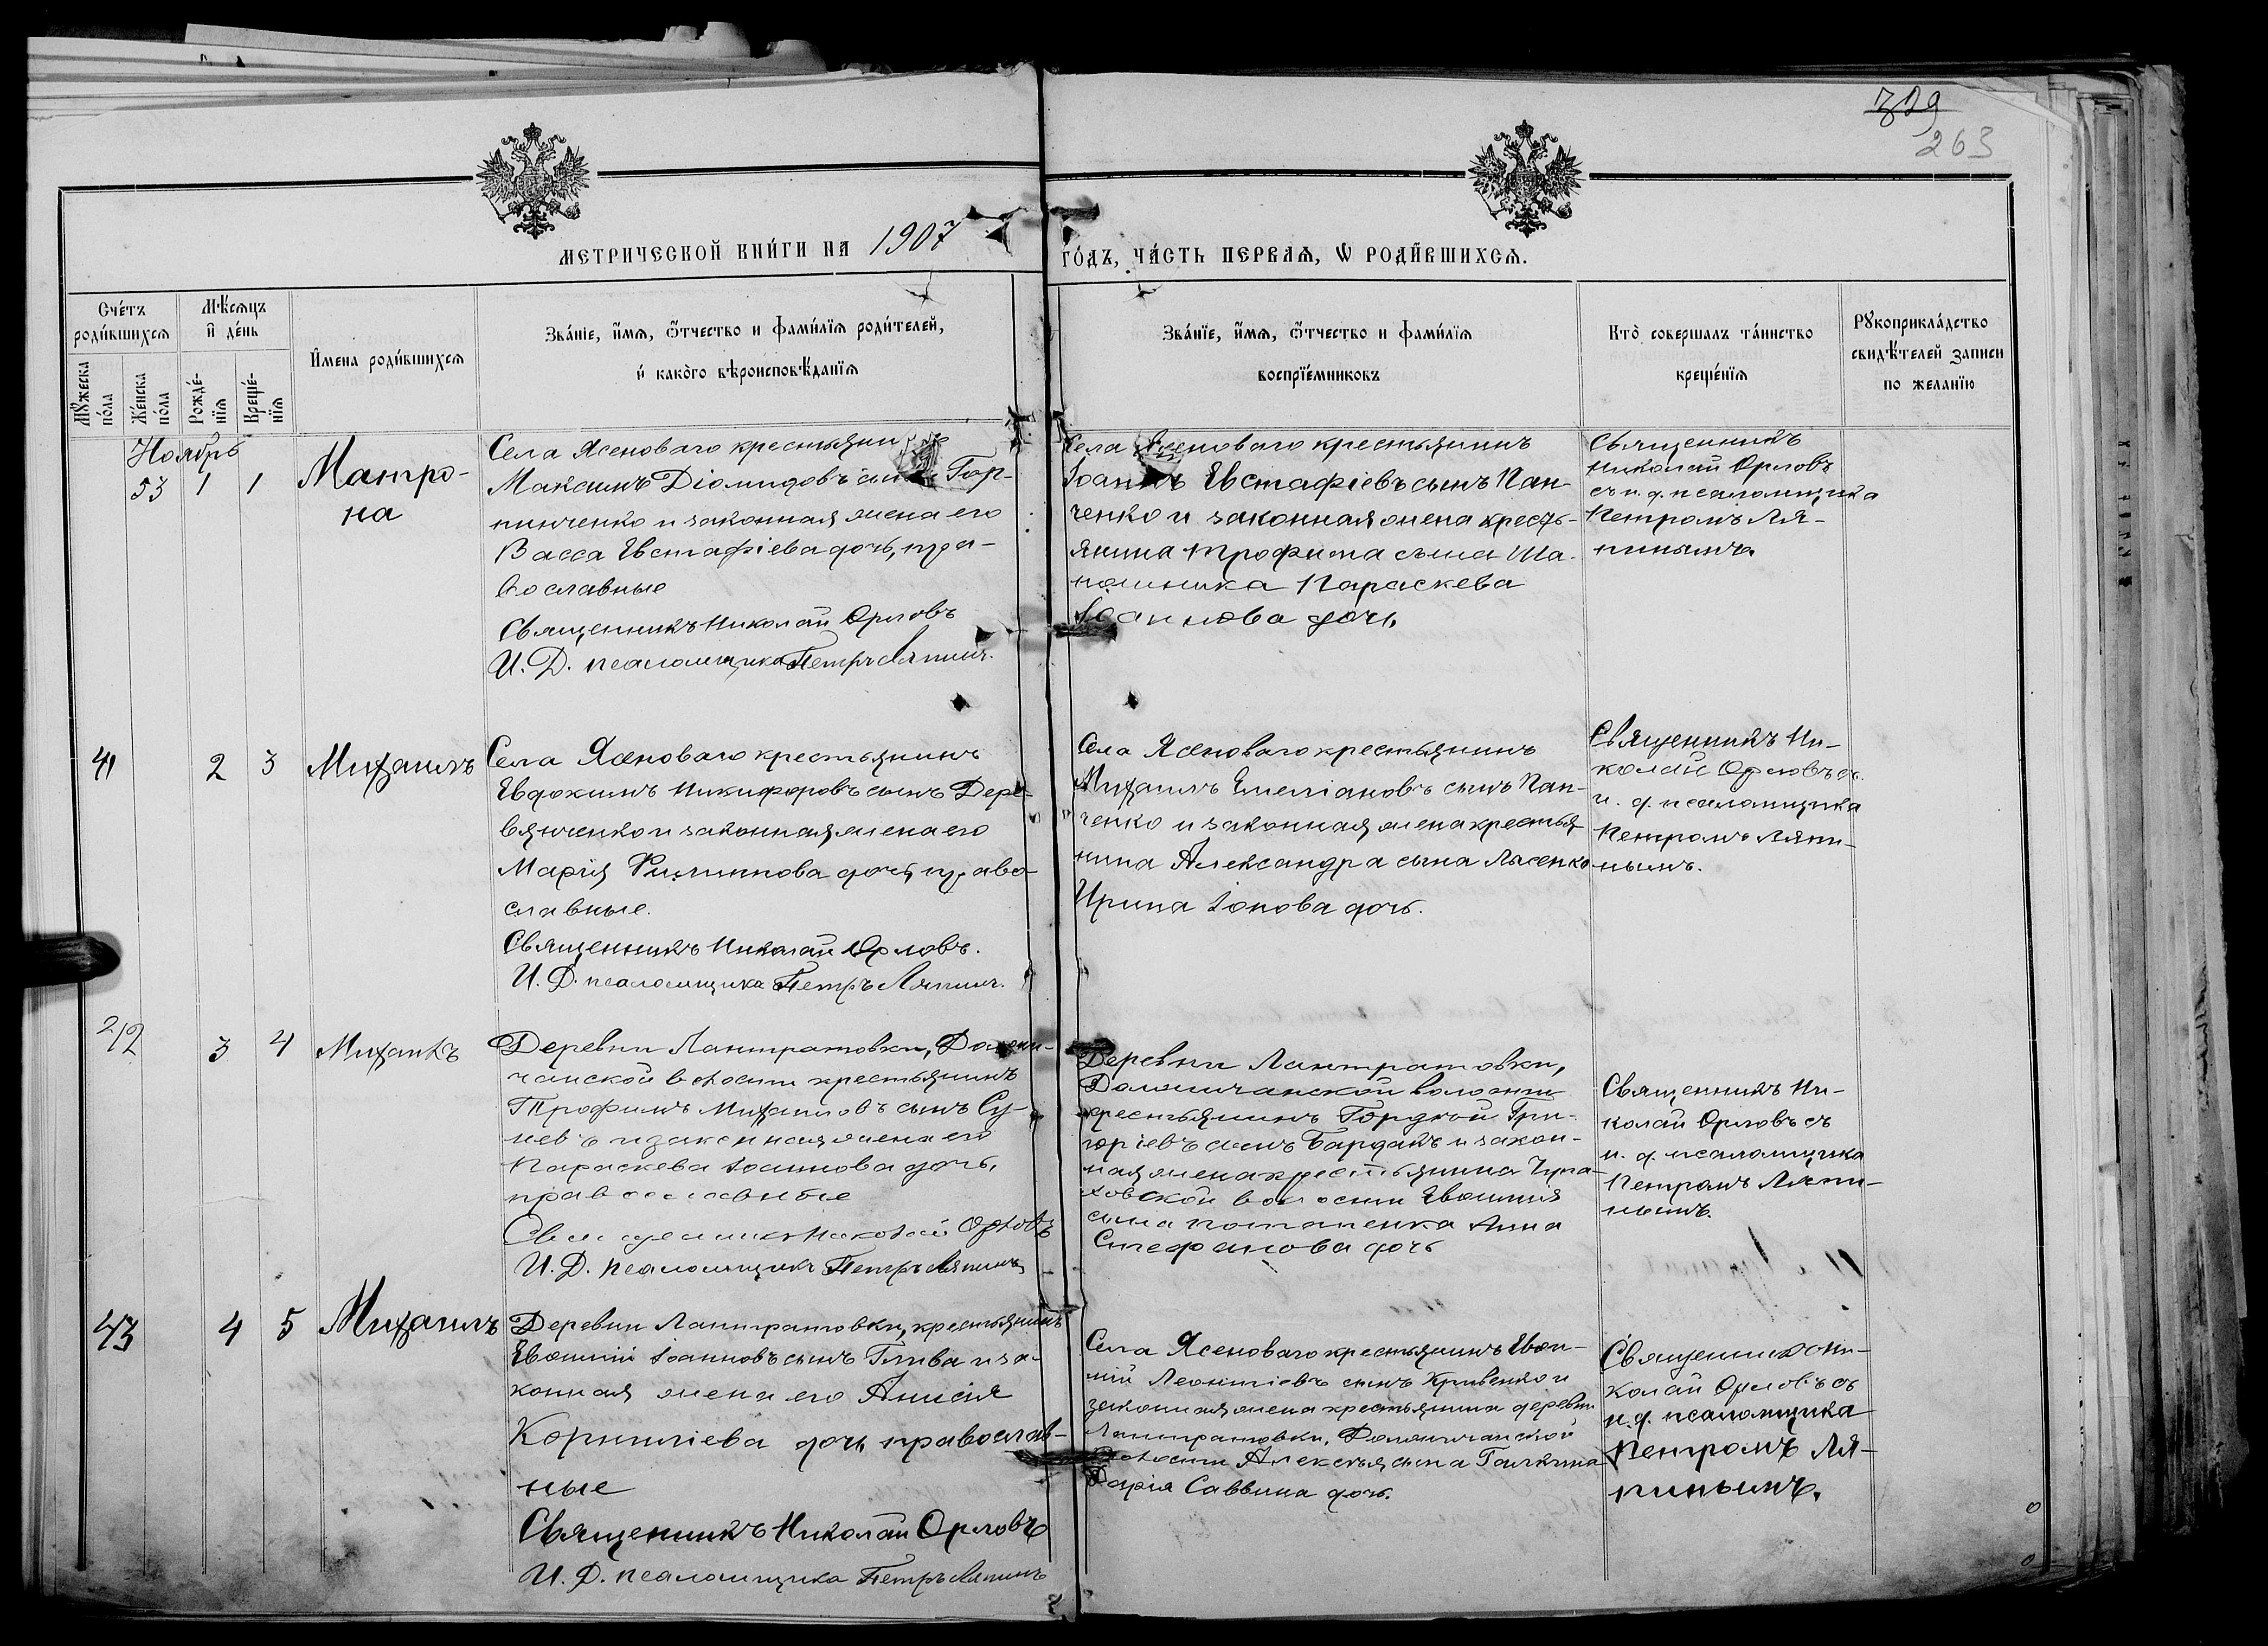 329
263
МЕТРИЧЕСКОЙ КНИ́ГИ НА 1907
ГО́ДЪ, ЧА́СТЬ ПЕРВАѦ, Ѡ РОДИ́ВШИХСѦ.
Сче́тъ роди́вшихсѧ
Мꙋ́жеска по́ла
Же́нска по́ла
Мѣ́сѧцъ и҆ де́нь
Рожде́-нїѧ
Креще́-нїѧ
И҆мена роди́вшихсѧ
Зва́нїе, и҆́мѧ, ѻ҆́тчество и фами́лїѧ роди́телей,
и҆ како́гѡ вѣроисповѣ́данїѧ
Зва́нїе, и҆́мѧ, ѻ҆́тчество и фами́лїѧ
воспрїе́мниковъ
Кто̀ соверша́лъ та́инство
креще́нїѧ
Рꙋкоприкла́дство
свидѣ́телей записи
по жела́нїю
Ноябрь
53 1 1
Матро-
на
Села Ясеноваго крестьянин
Максимъ Діомидовъ сынъ Гор-
пинченко и законная жена его
Васса Евстафіева дочь, пра-
вославные
Священникъ Николай Орловъ
И. Д. псаломщика Петръ Ляпинъ.
Села Ясеноваго крестьянинъ
Іоаннъ Евстафіевъ сынъ Пан-
ченко и законная жена кресть-
янина Трофима сына Ша-
пошника Параскева
Іоаннова дочь
Священникъ
Николай Орловъ
съ и. д. псаломщика
Петромъ Ля-
пинымъ.
41 2 3 Михаилъ
Села Ясеноваго крестьянинъ
Евдокимъ Никифоровъ сынъ Дере-
вянченко и законная жена его
Марія Филиппова дочь, право-
славные.
Священникъ Николай Орловъ.
И. Д. псаломщика Петръ Ляпинъ.
Села Ясеноваго крестьянинъ
Михаилъ Емеліановъ сынъ Пан-
ченко и законная жена крестья-
нина Александра сына Лысенко
Ирина Іонова дочь.
Священникъ Ни-
колай Орловъ съ
и. д. псаломщика
Петромъ Ляпи-
нымъ.
42 3 4 Михаилъ
Деревни Лантратовки, Должи-
чанской волости крестьянинъ
Трофимъ Михаиловъ сынъ Су-
невъ и законная жена его
Параскева Іоаннова дочь,
православные
Священникъ Николай Орловъ
И. Д. псаломщика Петръ Ляпинъ
Деревни Лантратовки,
волости
крестьянинъ Гордій Гри-
горіевъ сынъ Бардакъ и закон-
ная жена крестьянина
волости Евфимія
сына Потапенка Анна
Стефанова дочь
Священникъ Ни-
колай Орловъ съ
и. д. псаломщика
Петромъ Ляпи-
нымъ.
43 4 5 Михаилъ
Деревни Лантратовки, крестьянинъ
Евфимій Іоанновъ сынъ Глива и за-
конная жена его Анисія
Корниліева дочь, православ-
ные
Священникъ Николай Орловъ
И. Д. псаломщика Петръ Ляпинъ
Села Ясеноваго крестьянинъ Евфи-
мій Леонтіевъ сынъ Кривенко и
законная жена крестьянина деревни
Лантратовки,
волости Алексѣя сына
Дарія Саввина дочь.
Священникъ Ни-
колай Орловъ съ
и. д. псаломщика
Петромъ Ля-
пинымъ.